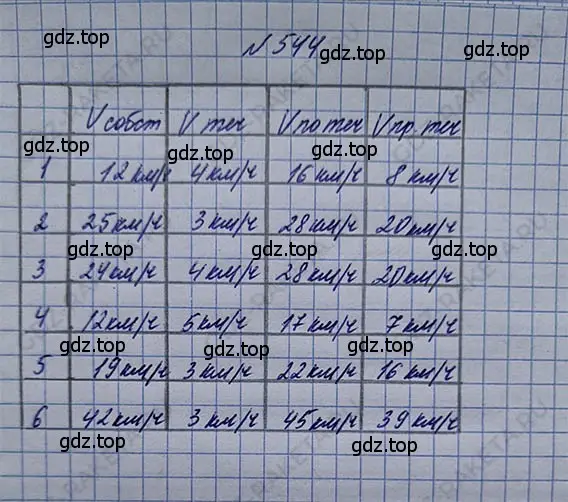 gdz.top gdz.top gdz.top
№ 544
V собст V теч V по теч V пр. теч
gdz.top gdz.top gdz.top
1 12 км/ч 4 км/ч 16 км/ч 8 км/ч
2 25 км/ч 3 км/ч 28 км/ч 20 км/ч
gdz.top gdz.top gdz.top
3 24 км/ч 4 км/ч 28 км/ч 20 км/ч
4 12 км/ч 5 км/ч 17 км/ч 7 км/ч
gdz.top gdz.top gdz.top
5 19 км/ч 3 км/ч 22 км/ч 16 км/ч
6 42 км/ч 3 км/ч 45 км/ч 39 км/ч
gdz.top gdz.top gdz.top